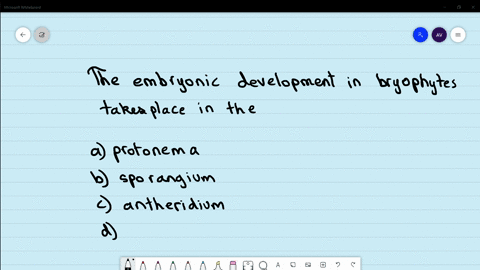 Microsoft Whiteboard
AV
The embryonic development in bryophytes
takesplace in the
a) protonema
b) sporangium
c) antheridium
d)